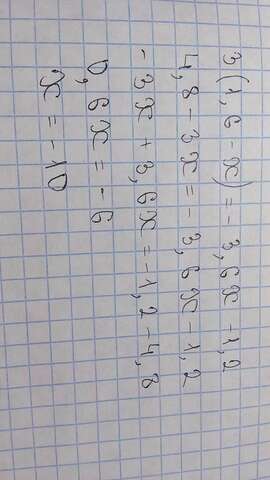 3(1,6-x)=-3,6x-1,2
4,8-3x=-3,6x-1,2
-3x+3,6x=-1,2-4,8
0,6x=-6
x=-10